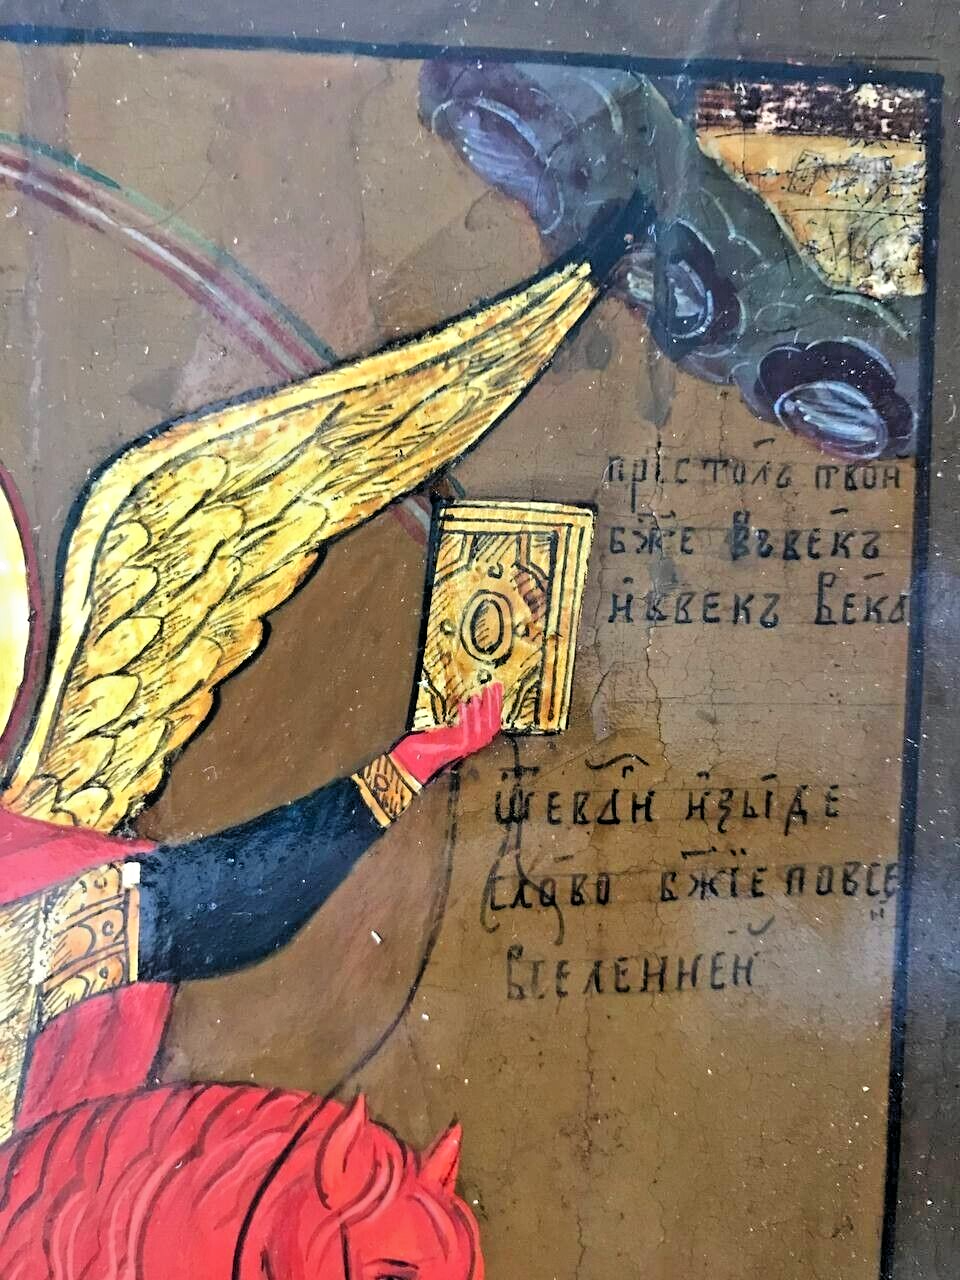 прїстолъ твой
бж҃е въвекъ
нъвекъ века
ѿ еван изыде
слово бж҃їе повсей
вселенней